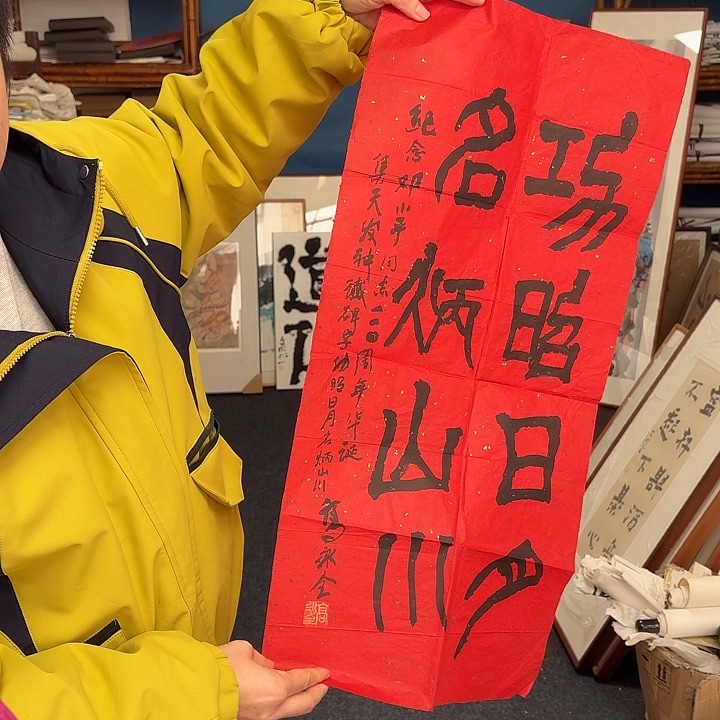 功昭日月
名炳山川
纪念邓小平同志一二〇周年华诞
集天发神谶碑字功昭日月名炳山川
永全
道